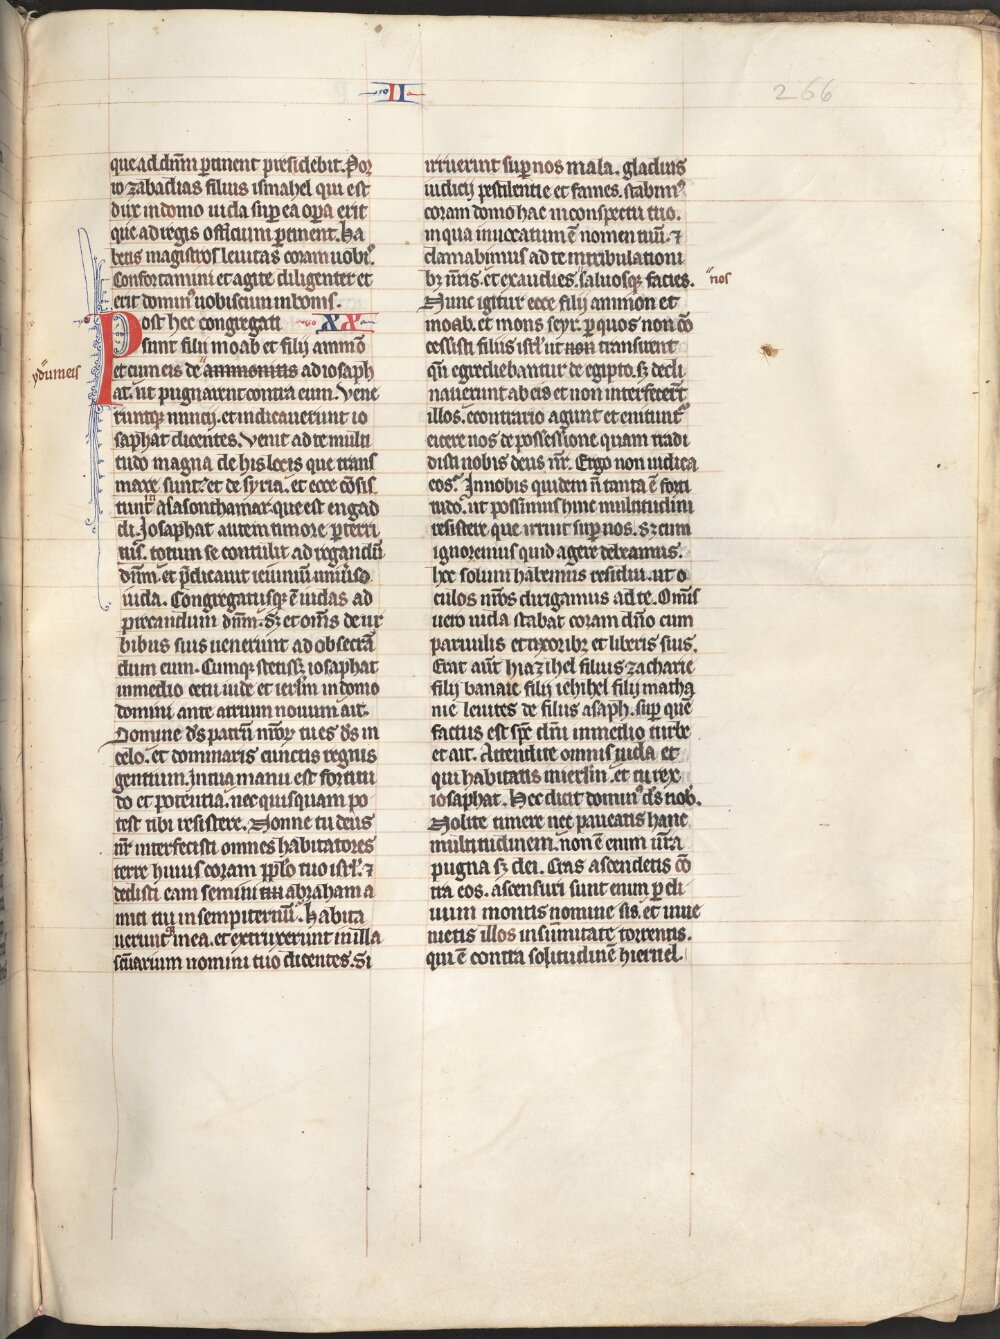 II
266
que ad dnm̄ ꝑtinent presidebit. Por
ro zabadias filius ismahel qui est
dux in domo iuda suꝑ ea oꝑa erit
que ad regis officium ꝑtinent. Ha
betis magistros leuitas coram uobiꝰ.
Confortamini et agite diligenter et
erit dominꝰ uobiscum in bonis.
Post hec congregati XX
sunt filii moab et filij ammō
et cum eis de ammonitis ad iosaph
ydumeis
at. ut pugnarent contra eum. Vene
runtqꝫ nuncij. et indicauerunt io
saphat dicentes. Venit ad te multi
tudo magna de his locis que trans
mare sunt. et de syria. et ecce cōsis
tunt in asasonthamar que est engad
di. Iosaphat autem timore ꝑterri
tus. totum se contulit ad rogandū
dnm̄. et p̄dicauit ieiuniū uniuso
iuda. Congregatusqꝫ ē iudas ad
precandum dnm̄. sꝫ et om̄s de ur
bibus suis uenerunt ad obsecrā
dum eum. Cumqꝫ stetissꝫ iosaphat
in medio cetu iude et ierl̄m in domo
domini ante atrium nouum ait.
Domine ds̄ patrū nr̄oꝝ tu es ds̄ in
celo. et dominaris cunctis regnis
gentium. In tua manu est fortitu
do et potentia. nec quisquam po
test tibi resistere. Nonne tu deus
nr̄ interfecisti omnes habitatores
terre huius coram ppl̄o tuo isrl̄. ⁊
dedisti eam semini tui abraham a
mici tui in sempiternū. Habita
ueruntqꝫ in ea. et extruxerunt in illa
scūarium nomini tuo dicentes. Si
irruerint suꝑ nos mala. gladius
iudicij pestilentie et fames. stabimꝰ
coram domo hac in conspectu tuo.
in qua inuocatum ē nomen tuū. ⁊
clamabimus ad te in tribulationi
bꝫ nr̄is. et exaudies. saluosqꝫ facies. nos
Nunc igitur ecce filij ammon et
moab. et mons seyr. ꝑ quos non cō
cessisti filiis isrl̄ ut non transirent
qn̄ egrediebantur de egipto. sꝫ decli
nauerunt ab eis et non interfecert̄
illos. econtrario agunt et nituntꝰ
eicere nos de possessione quam tradi
disti nobis deus nr̄. Ergo non iudica
eos. In nobis quidem n̄ tanta ē forti
tudo. ut possimus huic multitudini
resistere que irruit suꝑ nos. Sꝫ cum
ignoremus quid agere debeamus.
hoc solum habemus residui. ut o
culos nr̄os dirigamus ad te. Om̄is
uero iuda stabat coram dn̄o cum
paruulis et uxoribꝫ et liberis suis.
Erat aūt hiazihel filius zacharie
filij banaie filij iehihel filij matha
nie leuites de filiis asaph. suꝑ quē
factus est spc̄ dn̄i in medio turbe
et ait. Attendite omnis iuda et
qui habitatis in ierl̄m. et tu rex
iosaphat. Hec dicit dominꝰ ds̄ nob̄.
Nolite timere nec paueatis hanc
multitudinem. non ē enim ur̄a
pugna sꝫ dei. Cras ascendetis cō
tra eos. ascensuri sunt enim ꝑ cli
uum montis nomine sis. et inue
nietis illos in sūmitate torrentis.
qui ē contra solitudinē hieruel.